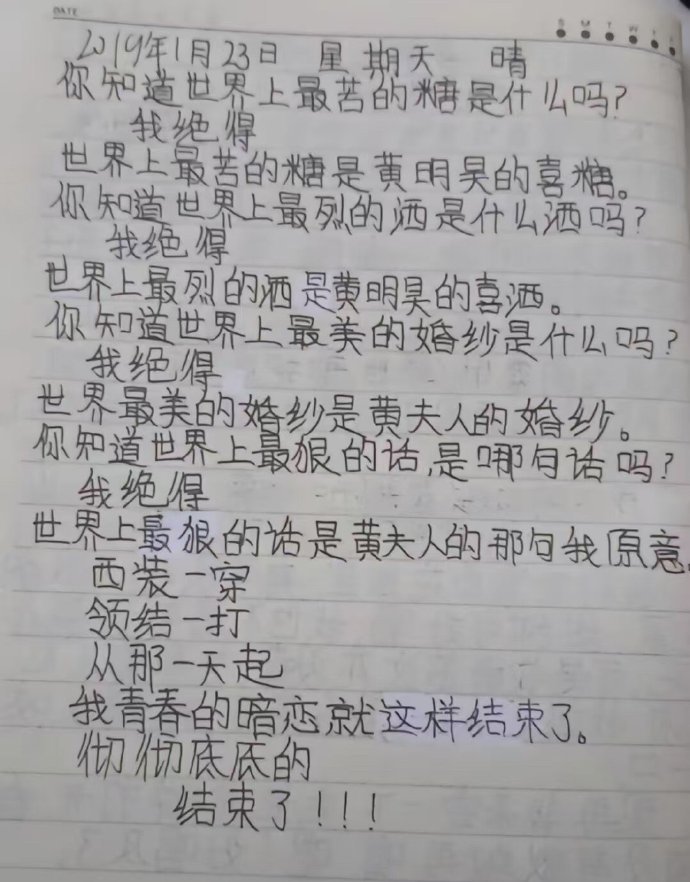 DATE
S M T W T F
2019年1月23日 星期天 晴
你知道世界上最苦的糖是什么吗?
我绝得
世界上最苦的糖是黄明昊的喜糖。
你知道世界上最烈的洒是什么洒吗?
我绝得
世界上最烈的洒是黄明昊的喜洒。
你知道世界上最美的婚纱是什么吗?
我绝得
世界最美的婚纱是黄夫人的婚纱。
你知道世界上最狠的话,是哪句话吗?
我绝得
世界上最狠的话是黄夫人的那句我原意.
西装一穿
领结一打
从那一天起
我青春的暗恋就这样结束了。
彻彻底底的
结束了!!!